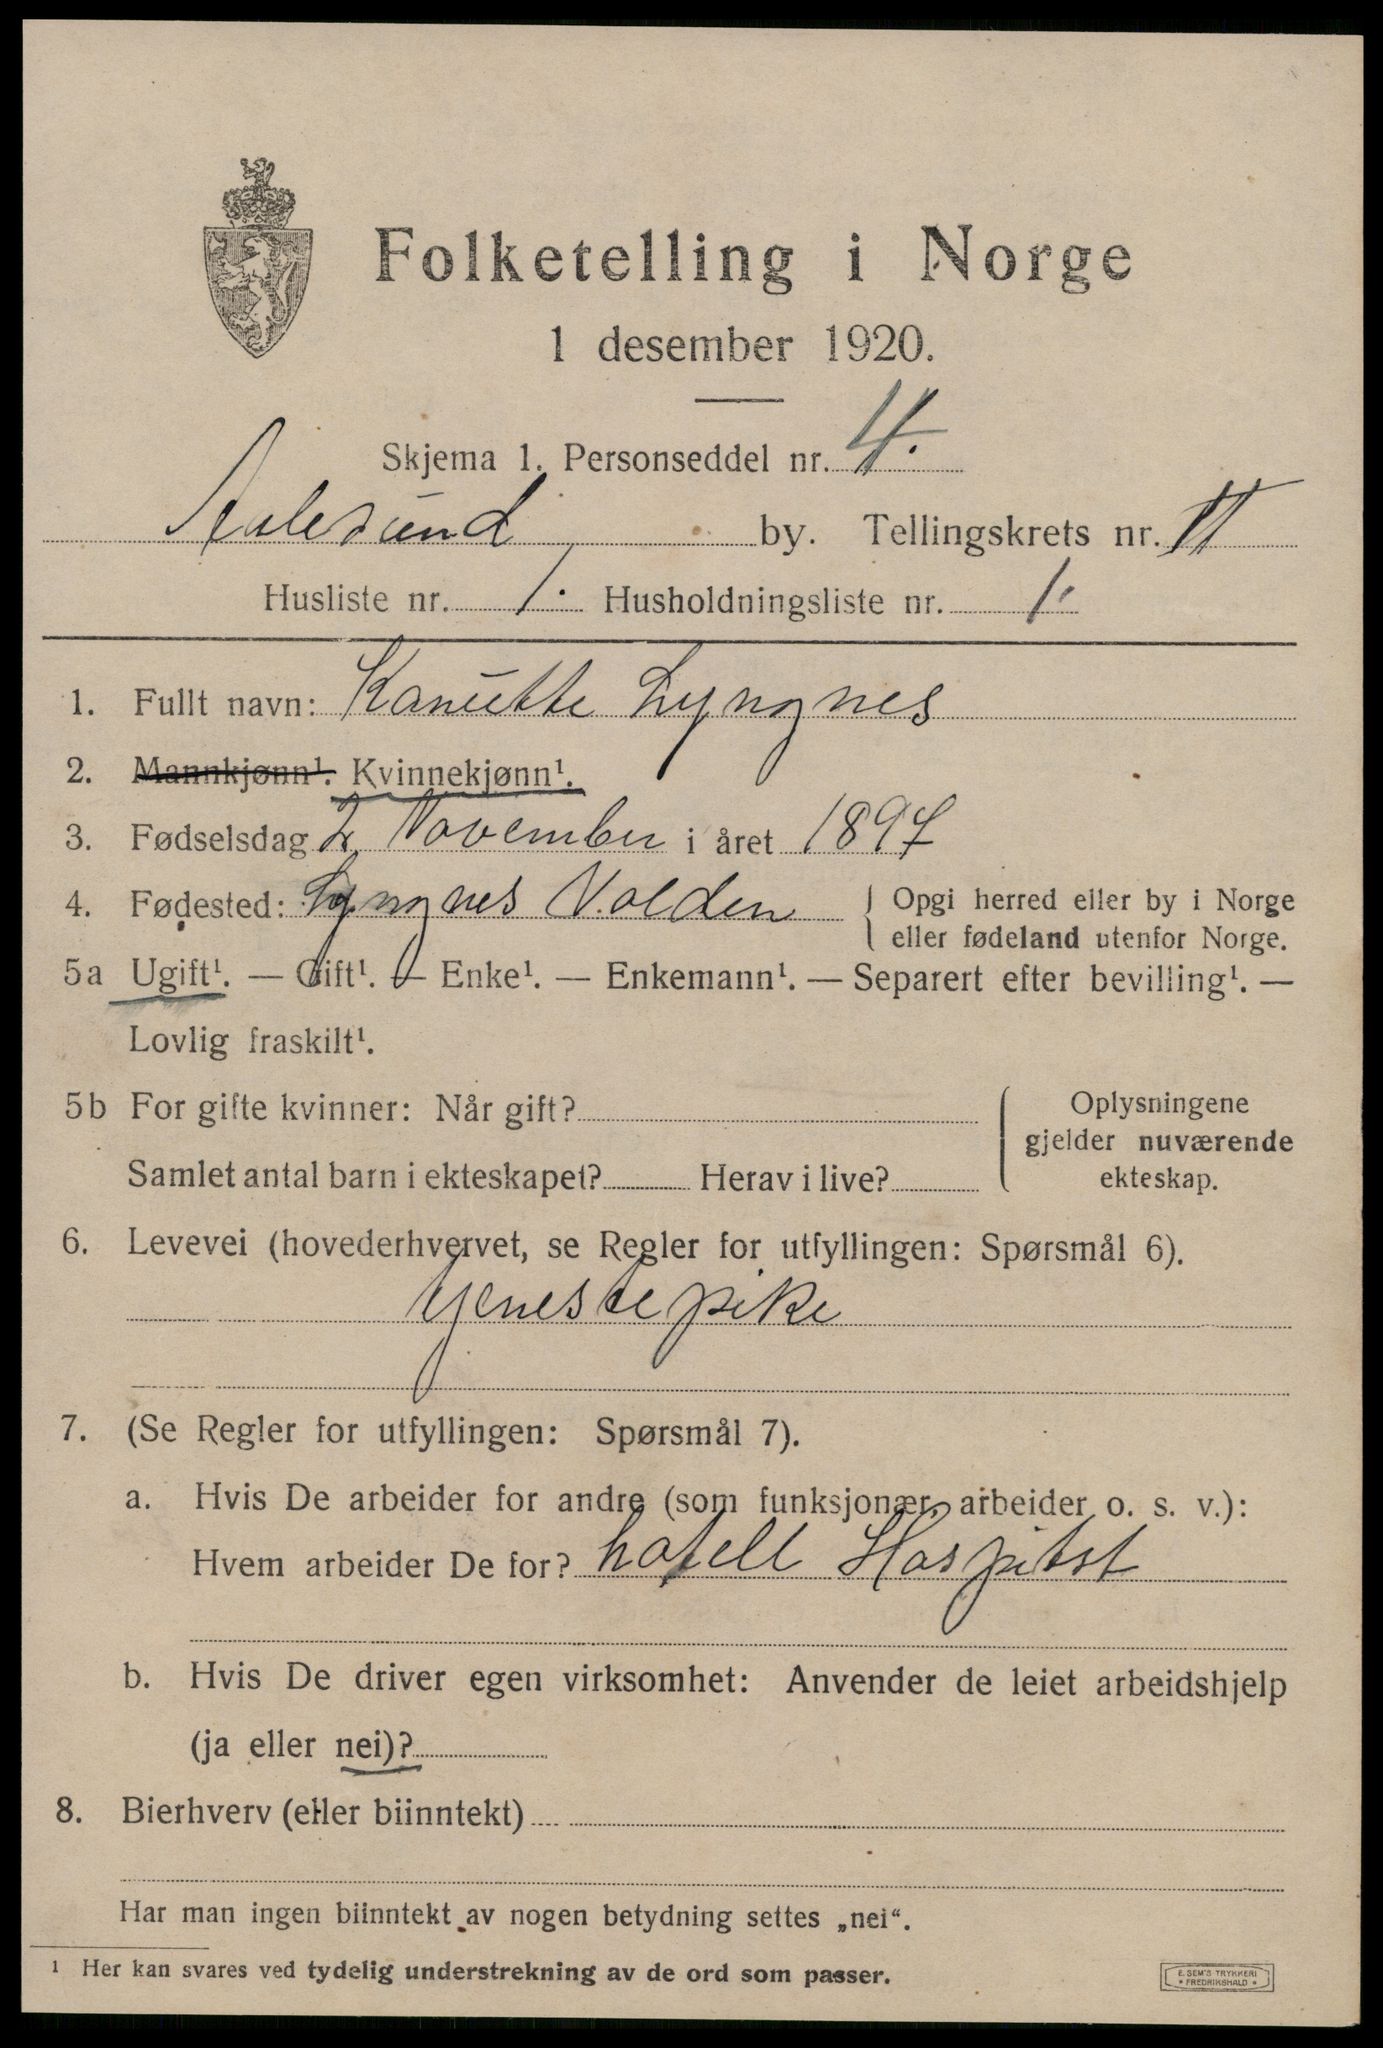 Folketelling i Norge
1 desember 1920.
Skjema 1. Personseddel nr. 4.
Aalesund by. Tellingskrets nr. II
Husliste nr. 1. Husholdningsliste nr. 1.
1. Fullt navn: Kanutte Lyngnes
2. Mannkjønn¹. Kvinnekjønn¹.
3. Fødselsdag 2 November i året 1897
4. Fødested: Lyngnes Volden { Opgi herred eller by i Norge
eller fødeland utenfor Norge.
5a Ugift¹. — Gift¹. — Enke¹. — Enkemann¹. — Separert efter bevilling¹. —
Lovlig fraskilt¹.
5b For gifte kvinner: Når gift?
Samlet antal barn i ekteskapet? Herav i live?
Oplysningene
gjelder nuværende
ekteskap.
6. Levevei (hovederhvervet, se Regler for utfyllingen: Spørsmål 6).
tjenestepike
7. (Se Regler for utfyllingen: Spørsmål 7).
a. Hvis De arbeider for andre (som funksjonær, arbeider o. s. v.):
Hvem arbeider De for? hotell Hospitst
b. Hvis De driver egen virksomhet: Anvender de leiet arbeidshjelp
(ja eller nei)?
8. Bierhverv (eller biinntekt)
Har man ingen biinntekt av nogen betydning settes „nei“.
1 Her kan svares ved tydelig understrekning av de ord som passer.
E. SEM'S TRYKKERI
* FREDRIKSHALD *